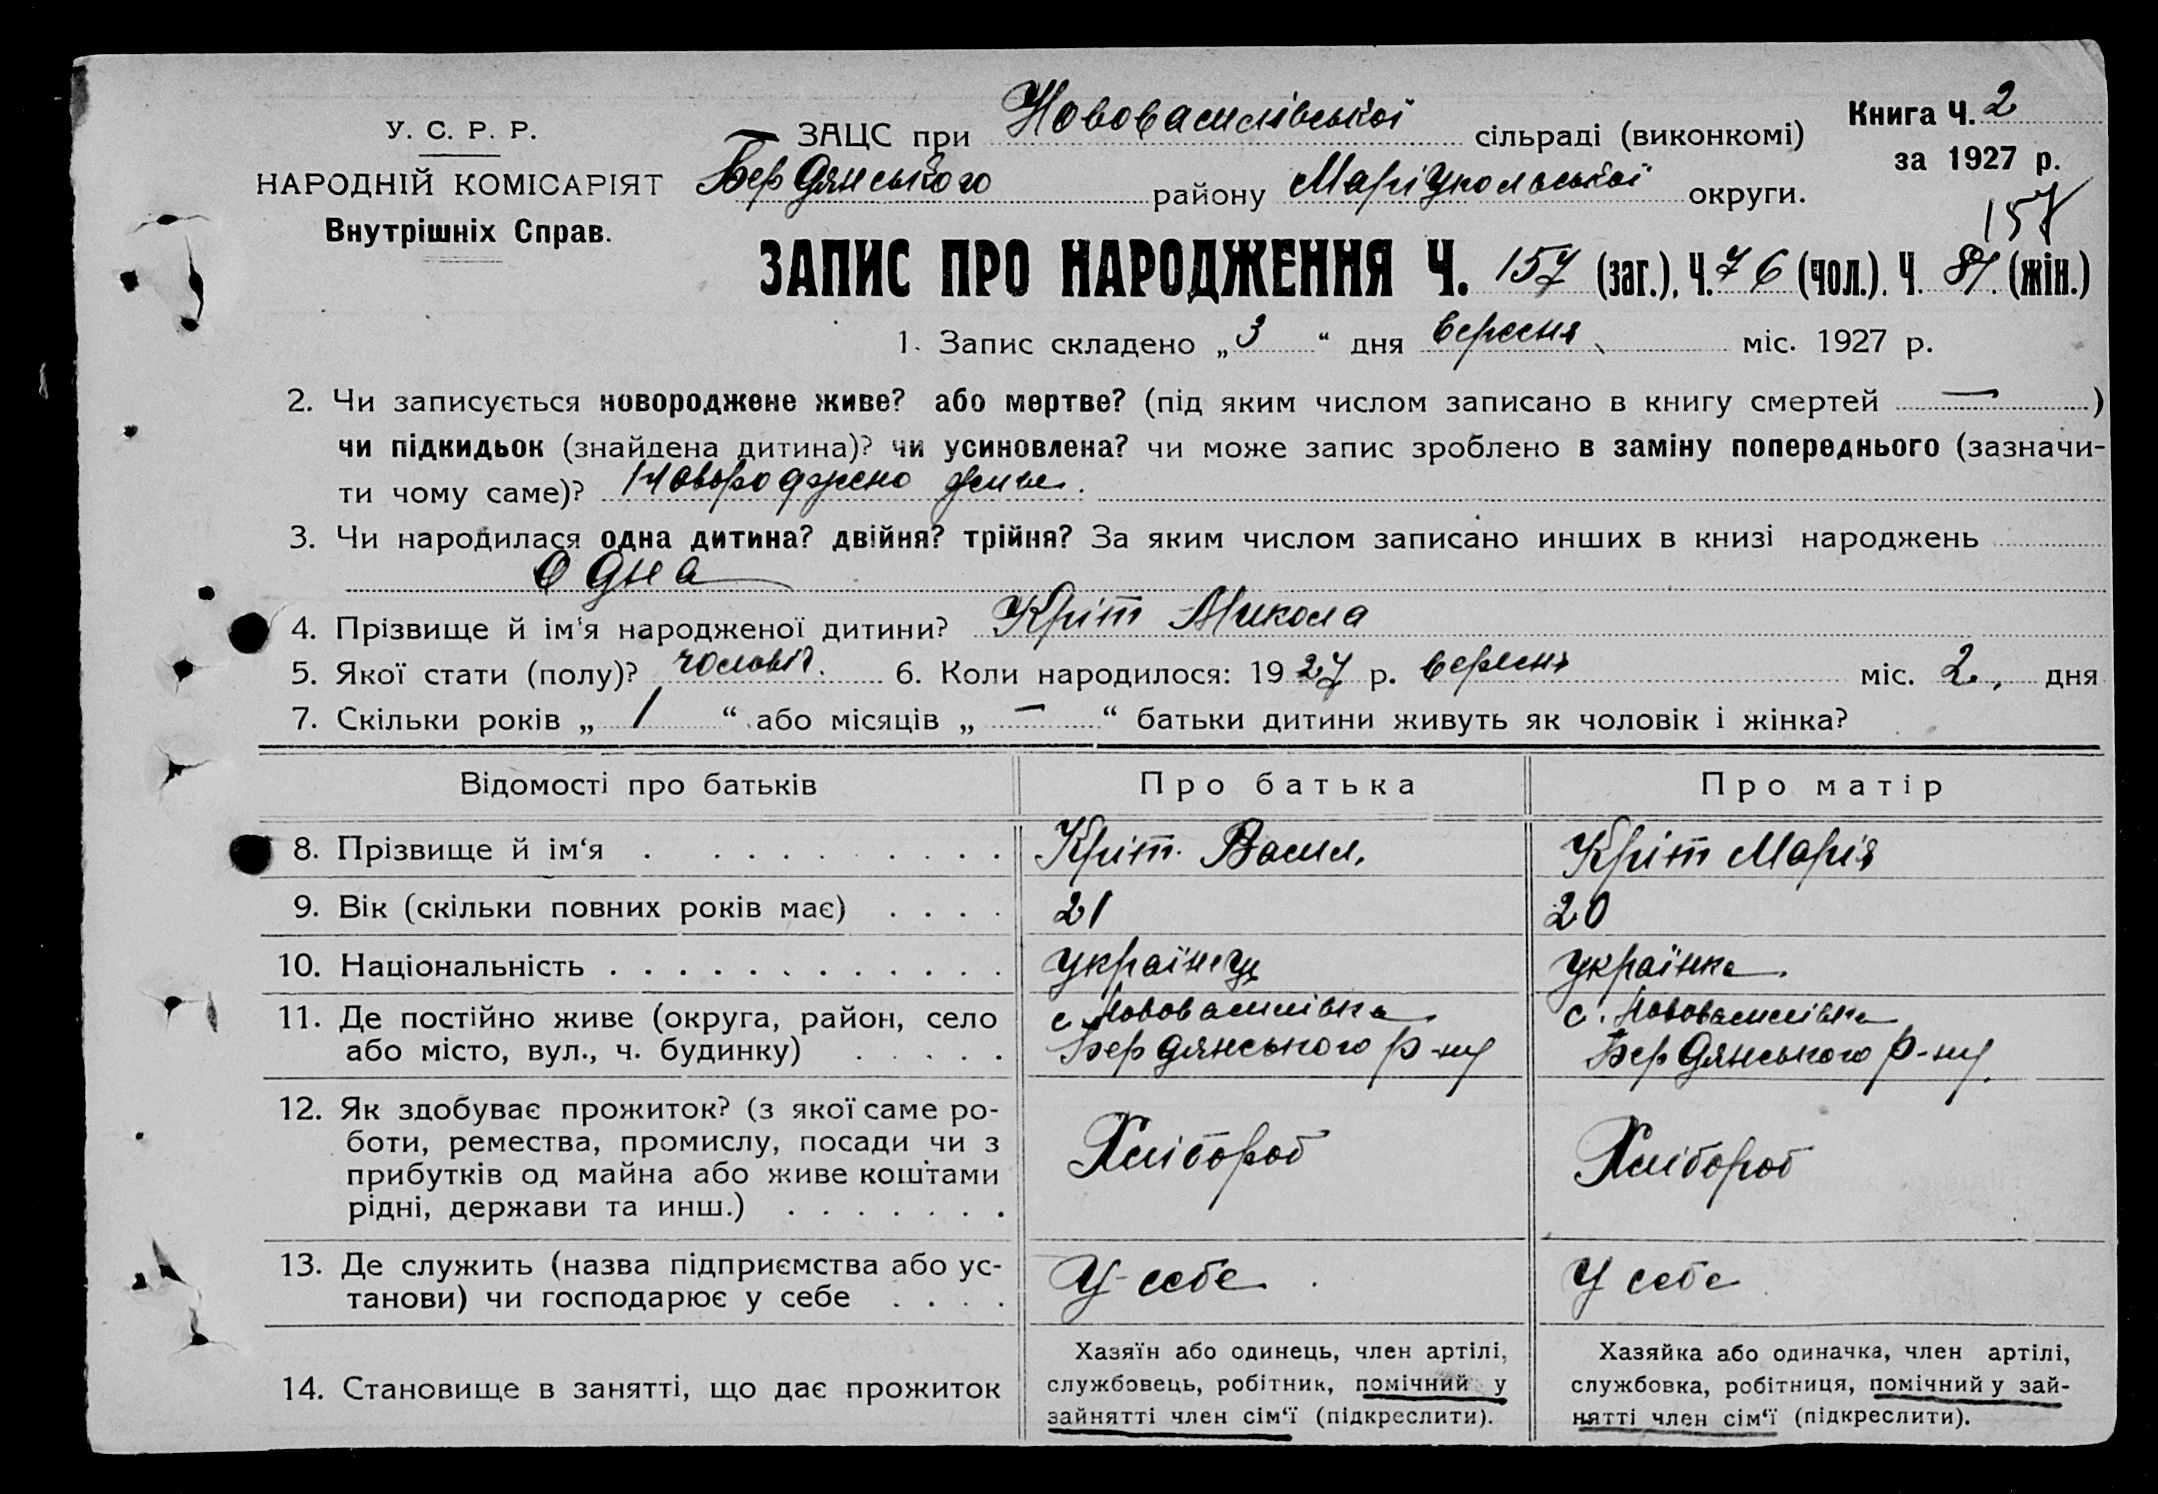 У. С. Р. Р.
НАРОДНІЙ КОМІСАРІЯТ
Внутрішніх Справ.
ЗАЦС при Нововасилівської сільраді (виконкомі)
Бердянського району Маріупольської округи.
Книга Ч. 2
за 1927 р.
157
ЗАПИС ПРО НАРОДЖЕННЯ Ч. 157 (заг.), Ч. 76 (чол.). Ч. 81 (жін.)
1. Запис складено „ 3 “ дня вересня міс. 1927 р.
2. Чи записується новороджене живе? або мертве? (під яким числом записано в книгу смертей — )
чи підкидьок (знайдена дитина)? чи усиновлена? чи може запис зроблено в заміну попереднього (зазначи-
ти чому саме)? Новороджено живе.
3. Чи народилася одна дитина? двійня? трійня? За яким числом записано инших в книзі народжень
Одна
4. Прізвище й ім'я народженої дитини? Кріт Микола
5. Якої стати (полу)? чоловіч. 6. Коли народилося: 1927 р. вересня міс. 2. дня
7. Скільки років „ 1 “ або місяців „ — “ батьки дитини живуть як чоловік і жінка?
Відомості про батьків Про батька Про матір
8. Прізвище й ім‘я . . . . . . . . . . Кріт Васил. Кріт Марія
9. Вік (скільки повних років має) . . . . 21 20
10. Національність . . . . . . . . . . . . українець українка.
11. Де постійно живе (округа, район, село с. Нововасилівка с. Нововасилівка
або місто, вул., ч. будинку) . . . . . Бердянського р-ну Бердянського р-ну.
12. Як здобуває прожиток? (з якої саме ро-
боти, ремества, промислу, посади чи з Хлібороб Хлібороб
прибутків од майна або живе коштами
рідні, держави та инш.) . . . . . . .
13. Де служить (назва підприємства або ус- У себе У себе
танови) чи господарює у себе . . . .
14. Становище в занятті, що дає прожиток
Хазяїн або одинець, член артілі,
службовець, робітник, помічний у
зайнятті член сім‘ї (підкреслити).
Хазяйка або одиначка, член артілі,
службовка, робітниця, помічний у зай-
нятті член сім‘ї (підкреслити).